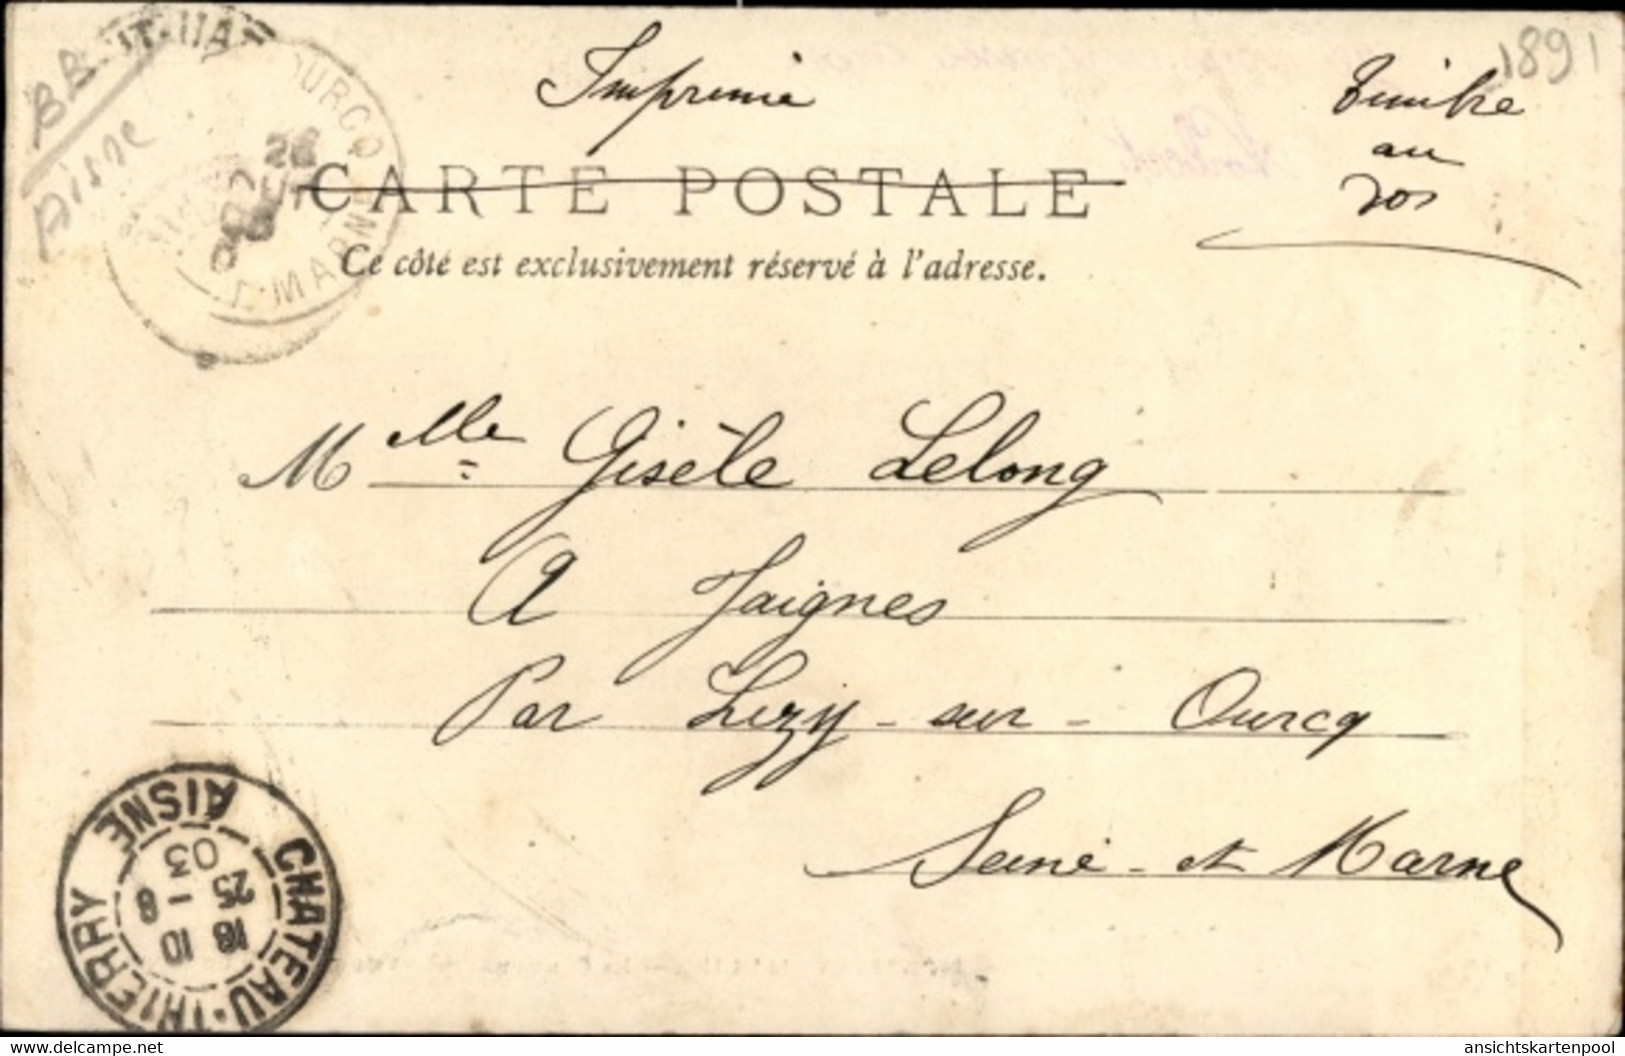 1891
Imprimé
Timbre
au
dos
Aisne
OURCQ
26
MARNE
CARTE POSTALE
Ce côté est exclusivement réservé à l'adresse.
Mlle Gisèle Lelong
A Jaignes
Par Lizy-sur-Ourcq
Seine-et-Marne
CHATEAU-THIERRY
AISNE
18 10
25 - 8
03
www.delcampe.net
ansichtskartenpool